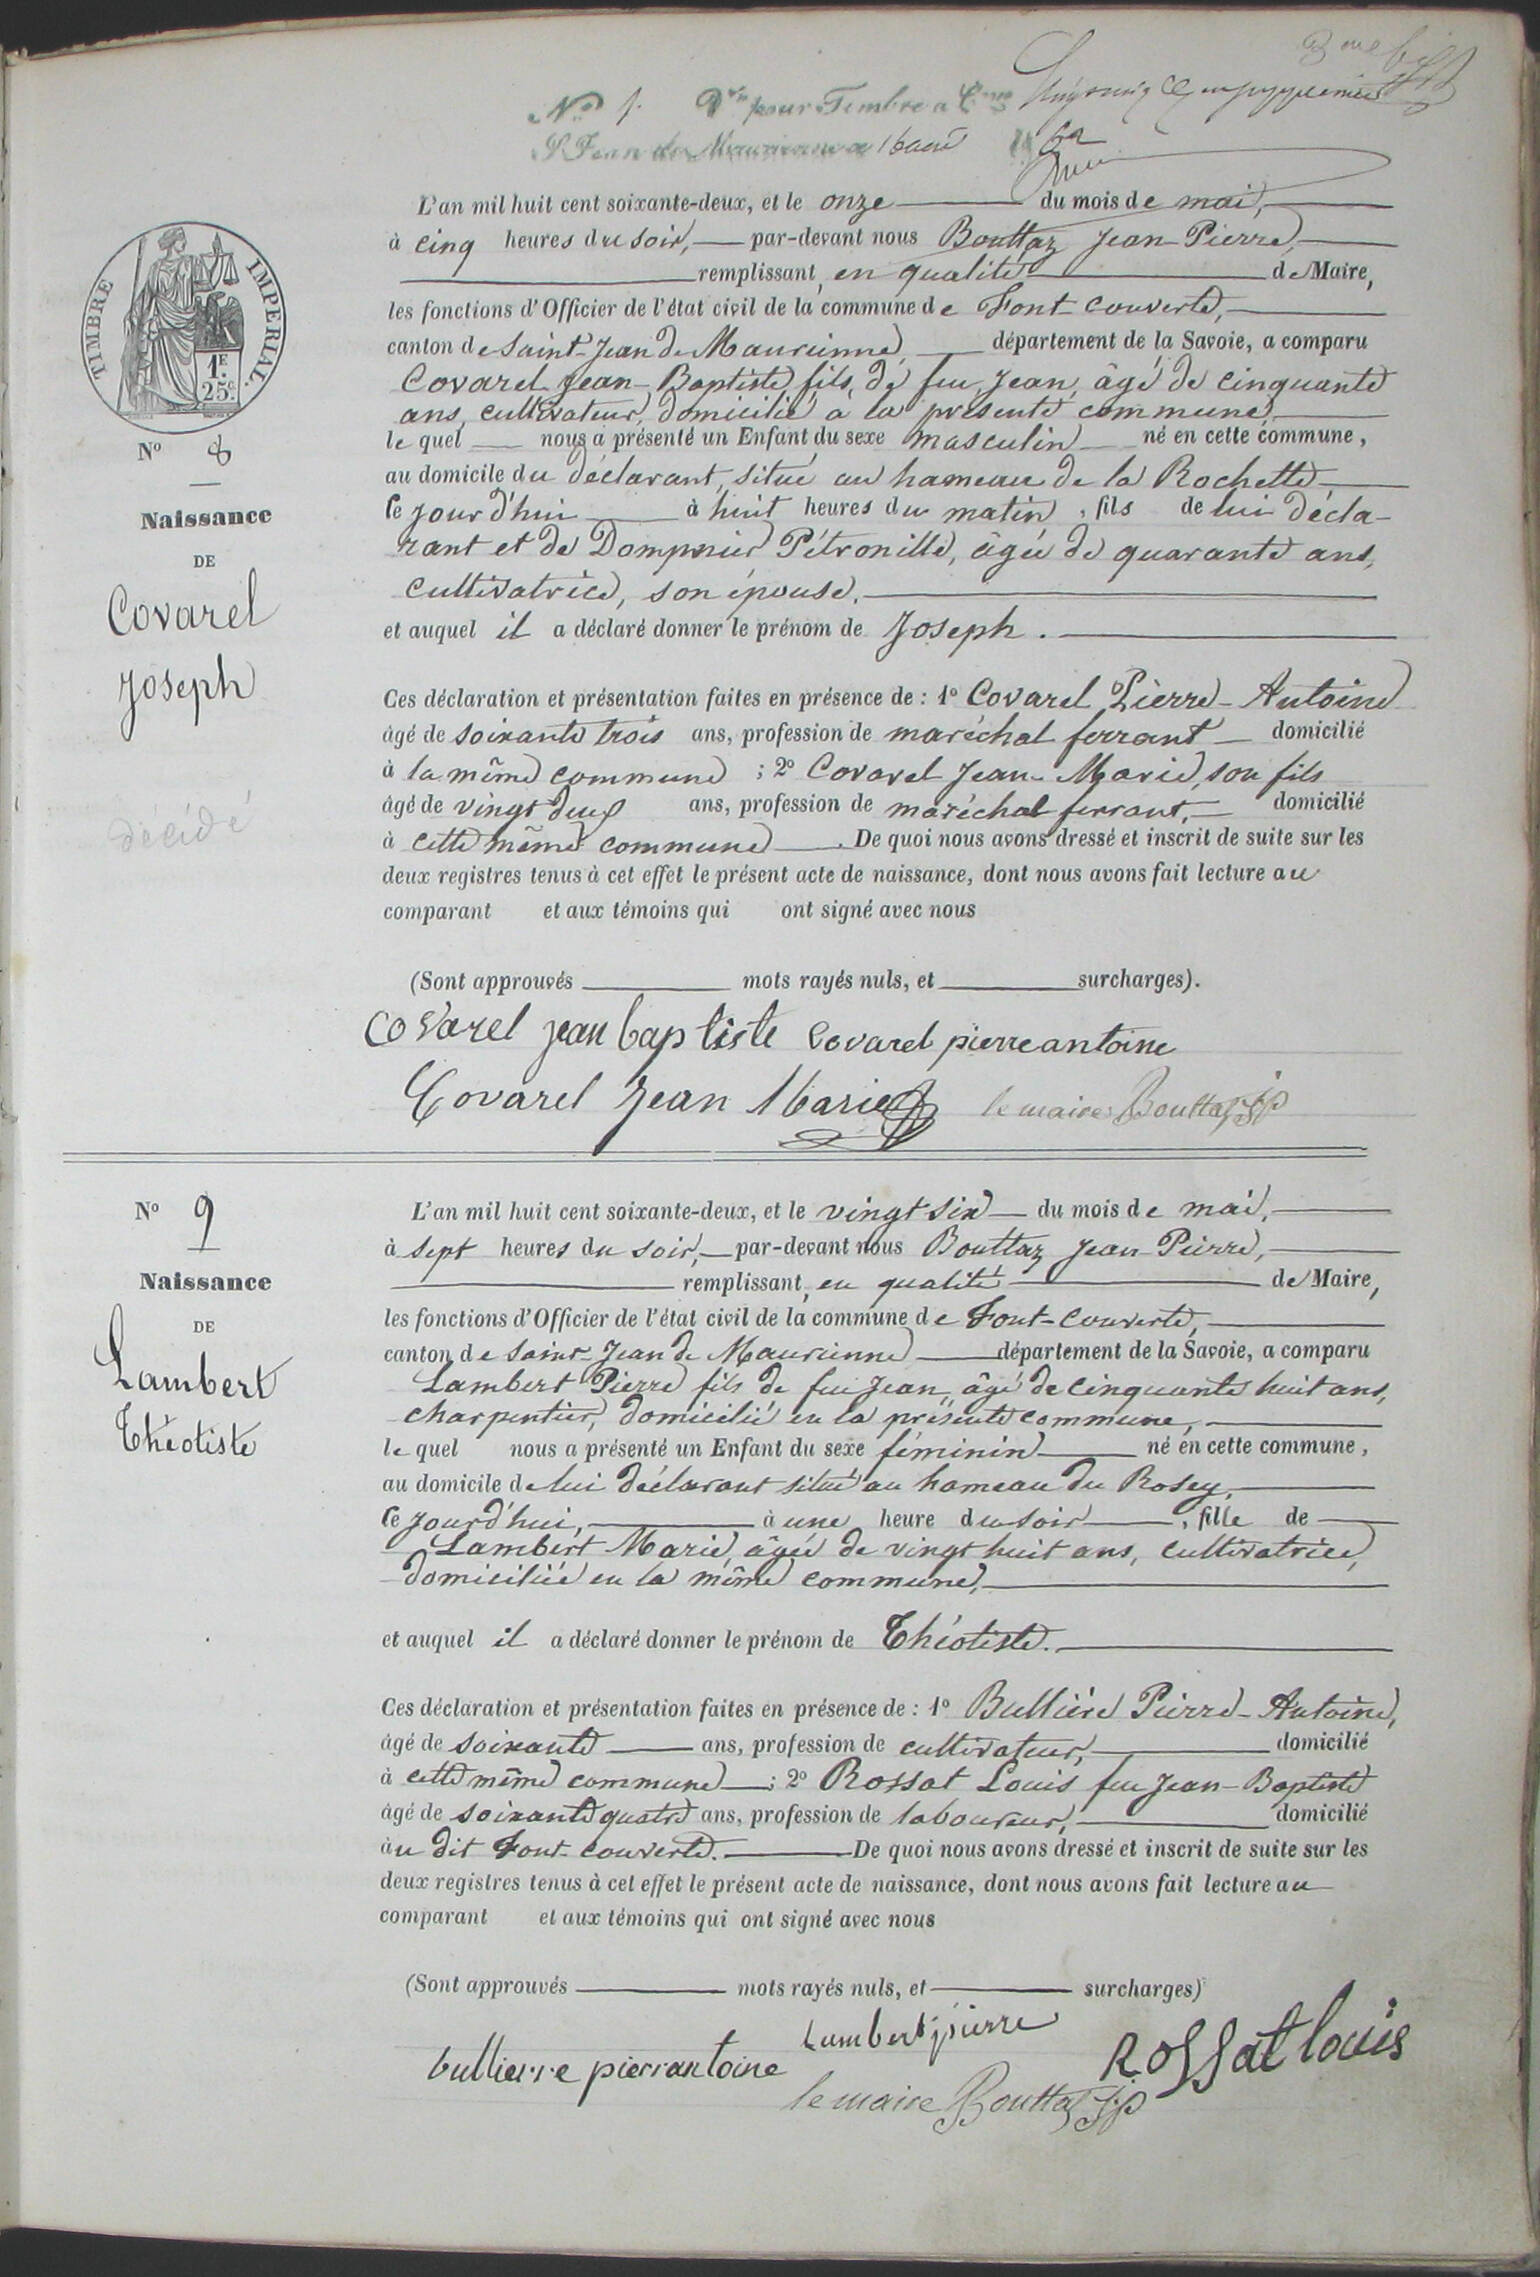 N° 1. Vu pour Timbre a
S Jean de Maurienne 62
TIMBRE IMPERIAL.
1F.
25c.
N° 8
Naissance
DE
Covarel
Joseph
décédé
L'an mil huit cent soixante-deux, et le onze du mois de mai,
à cinq heures du soir, par-devant nous Bouttaz Jean-Pierre,
remplissant, en qualité de Maire,
les fonctions d'Officier de l'état civil de la commune de Font-couverte,
canton de Saint-Jean de Maurienne, département de la Savoie, a comparu
Covarel Jean-Baptiste, fils de feu Jean, âgé de cinquante
ans, cultivateur, domicilié à la présente commune,
le quel nous a présenté un Enfant du sexe masculin né en cette commune,
au domicile du déclarant, situé au hameau de la Rochette,
ce jourd'hui à huit heures du matin, fils de lui décla-
rant et de Dompnier Pétronille, âgée de quarante ans,
cultivatrice, son épouse.
et auquel il a déclaré donner le prénom de Joseph.
Ces déclaration et présentation faites en présence de : 1° Covarel Pierre-Antoine
âgé de soixante trois ans, profession de maréchal ferrant domicilié
à la même commune ; 2° Covarel Jean-Marie, son fils
âgé de vingt deux ans, profession de maréchal ferrant, domicilié
à cette même commune. De quoi nous avons dressé et inscrit de suite sur les
deux registres tenus à cet effet le présent acte de naissance, dont nous avons fait lecture au
comparant et aux témoins qui ont signé avec nous
(Sont approuvés mots rayés nuls, et surcharges).
Covarel jean baptiste Covarel pierre antoine
Covarel Jean Marie le maire Bouttaz jp
N° 9
Naissance
DE
Lambert
Théotiste
L'an mil huit cent soixante-deux, et le vingt six du mois de mai,
à sept heures du soir, par-devant nous Bouttaz Jean-Pierre,
remplissant, en qualité de Maire,
les fonctions d'Officier de l'état civil de la commune de Font-couverte,
canton de Saint-Jean de Maurienne département de la Savoie, a comparu
Lambert Pierre fils de feu Jean, âgé de cinquante huit ans,
charpentier, domicilié en la présente commune,
le quel nous a présenté un Enfant du sexe féminin né en cette commune,
au domicile de lui déclarant situé au hameau du Rosey,
ce jourd'hui, à une heure du soir, fille de
Lambert Marie, âgée de vingt huit ans, cultivatrice,
domiciliée en la même commune,
et auquel il a déclaré donner le prénom de Théotiste.
Ces déclaration et présentation faites en présence de : 1° Bullière Pierre-Antoine,
âgé de soixante ans, profession de cultivateur, domicilié
à cette même commune ; 2° Rossat Louis feu Jean-Baptiste
âgé de soixante quatre ans, profession de laboureur, domicilié
àu dit Font-couverte. De quoi nous avons dressé et inscrit de suite sur les
deux registres tenus à cet effet le présent acte de naissance, dont nous avons fait lecture au
comparant et aux témoins qui ont signé avec nous
(Sont approuvés mots rayés nuls, et surcharges)
Lambert pierre
bullierre pierrantoine Rossat louis
le maire Bouttaz jp